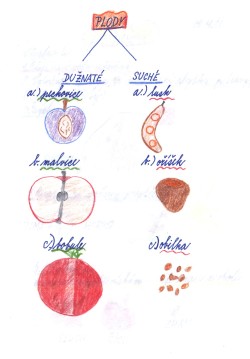 PLODY
DUŽNATÉ SUCHÉ
a.) peckovice a.) lusk
b. malvice b.) oříšek
c) bobule c) obilka